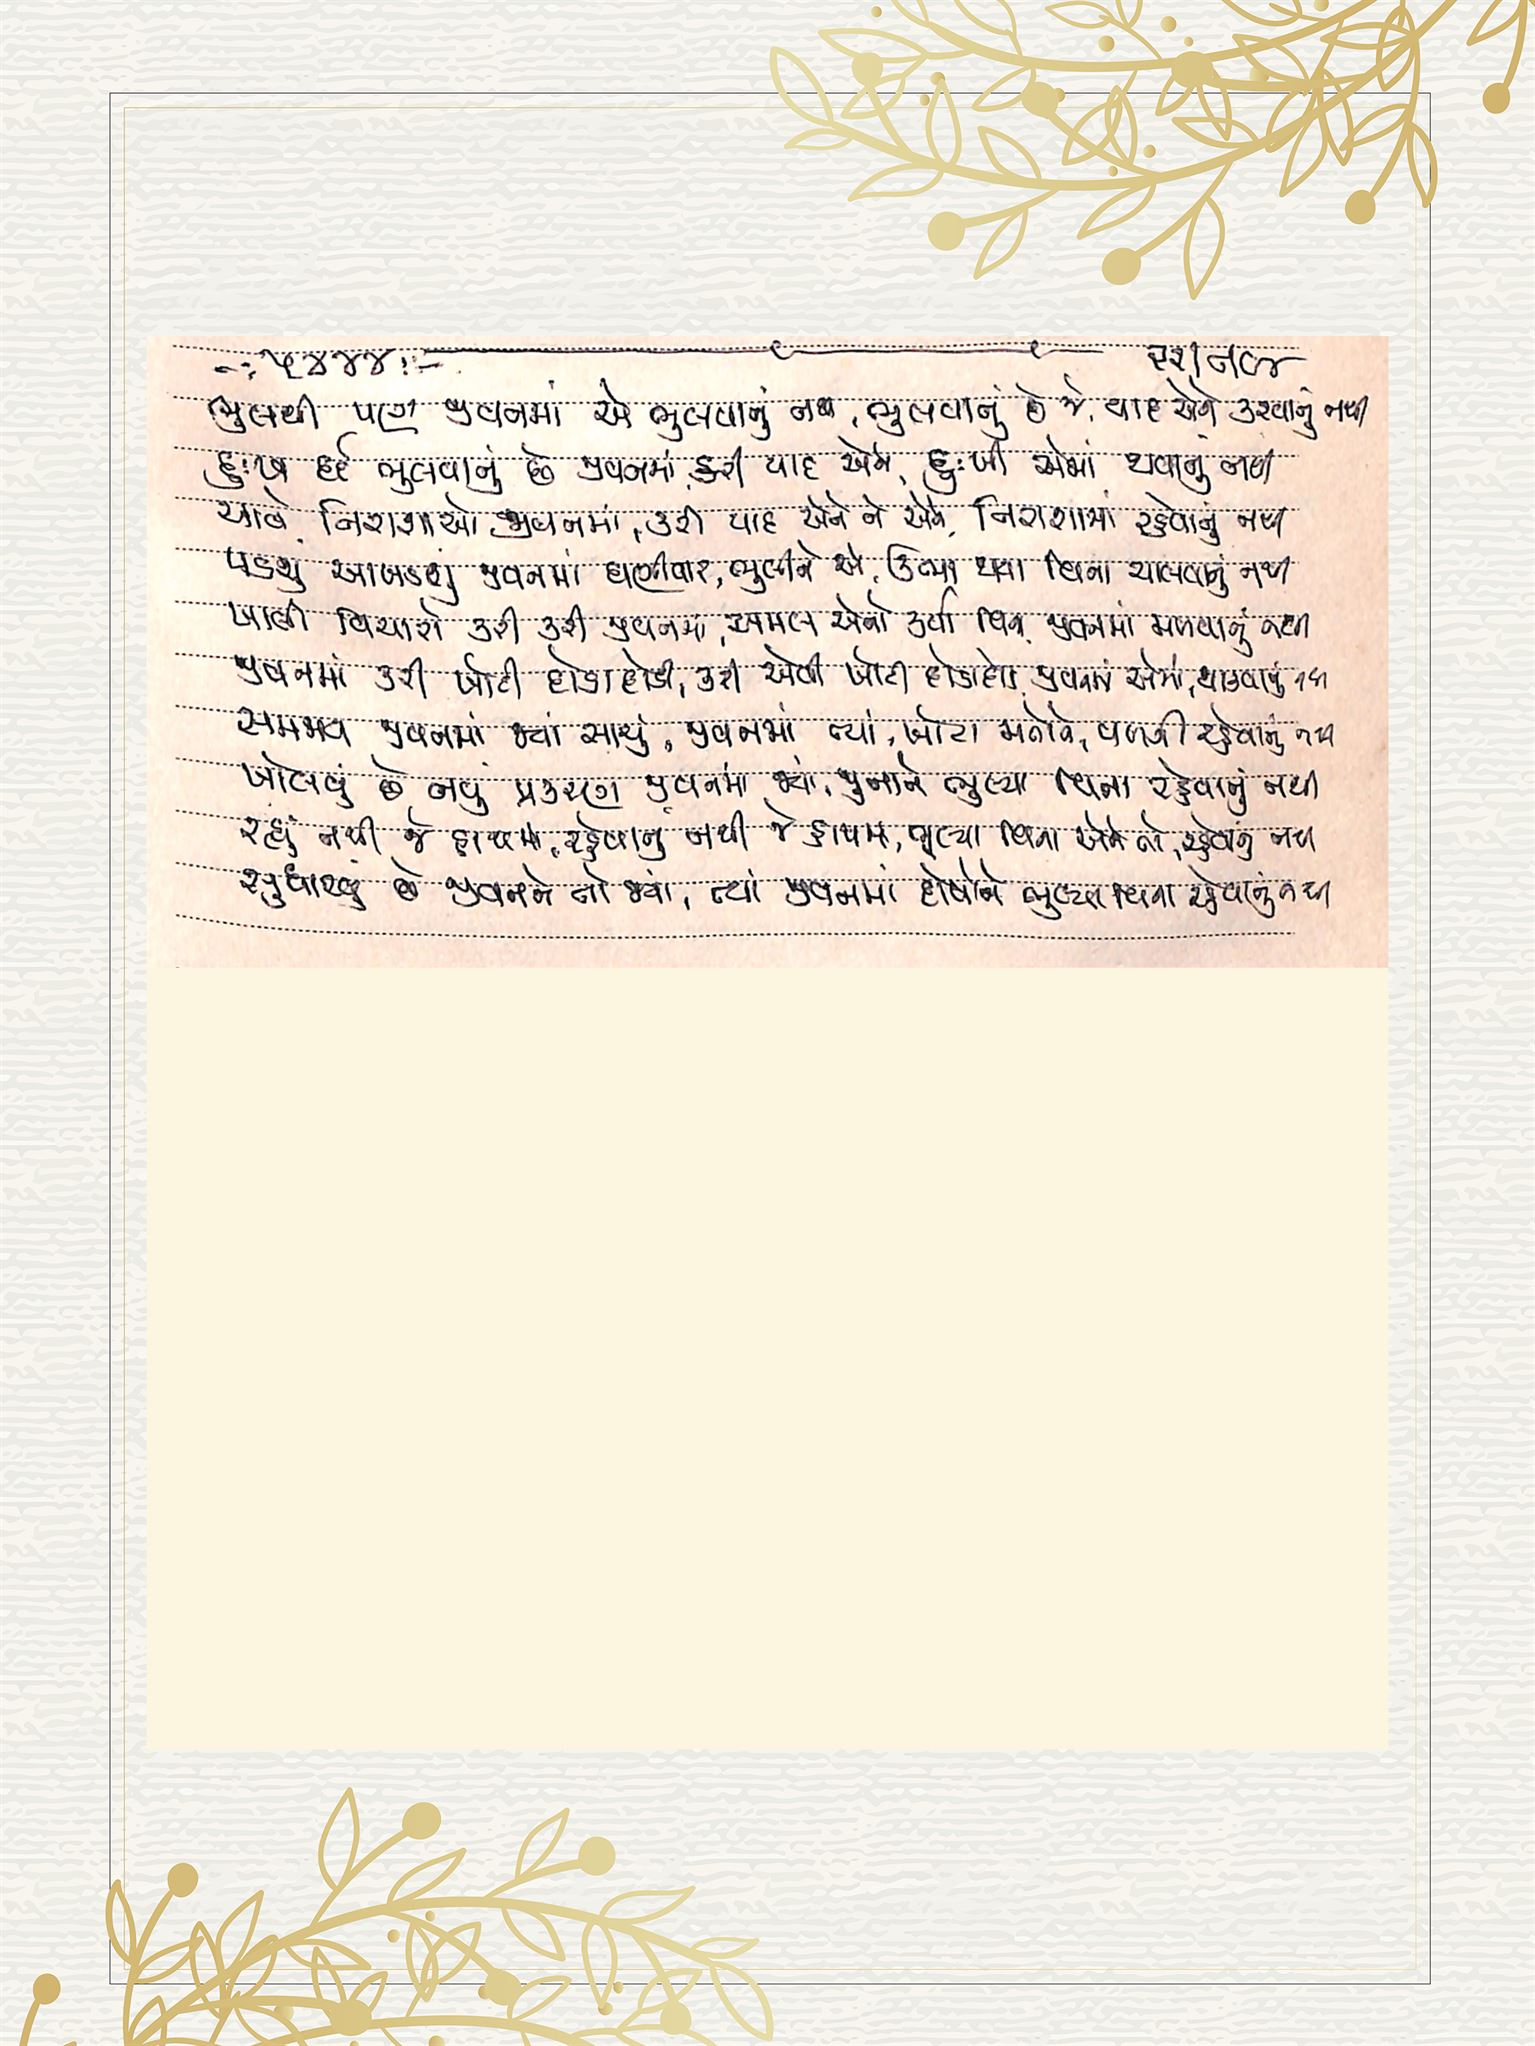 -: ૫૪૪૪ :-
ભુલથી પણ જીવનમાં એ ભુલવાનું નથી, ભુલવાનું છે જે, યાદ એને કરવાનું નથી
દુઃખ દર્દ ભુલવાનું છે જીવનમાં, કરી યાદ એને, દુઃખી એમાં થવાનું નથી
આવે નિરાશાઓ જીવનમાં, કરી યાદ એને ને એને, નિરાશામાં રહેવાનું નથી
પડશું આખડશું જીવનમાં ઘણીવાર, ભુલીને એ, ઊભા થયા વિના ચાલવાનું નથી
ખાલી વિચારો કરી કરી જીવનમાં, અમલ એનો કર્યા વિના જીવનમાં મળવાનું નથી
જીવનમાં કરી ખોટી દોડાદોડી, કરી એવી ખોટી દોડાદોડી જીવનમાં એમાં, થાકવાનું નથી
સમજાય જીવનમાં જ્યાં સાચું, જીવનમાં ત્યાં, ખોટા મતોને, વળગી રહેવાનું નથી
ખોલવું છે નવું પ્રકરણ જીવનમાં જ્યાં, જુનાને ભુલ્યા વિના રહેવાનું નથી
રહ્યું નથી જે હાથમાં, રહેવાનું નથી જે હાથમાં, ભૂલ્યા વિના એને તો, રહેવાનું નથી
સુધારવું છે જીવનને તો જ્યાં, ત્યાં જીવનમાં દોષોને ભુલ્યા વિના રહેવાનું નથી